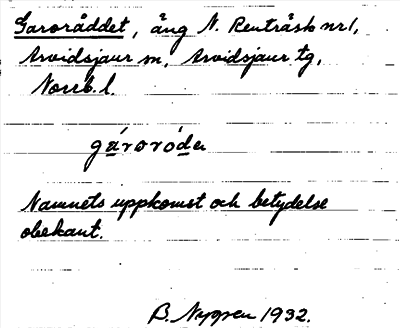 Garoråddet, äng N. Renträsk nr 1,
Arvidsjaur sn, Arvidsjaur tg,
Norrb. l.
gároróda
Namnets uppkomst och betydelse
obekant.
B. Nygren 1932.